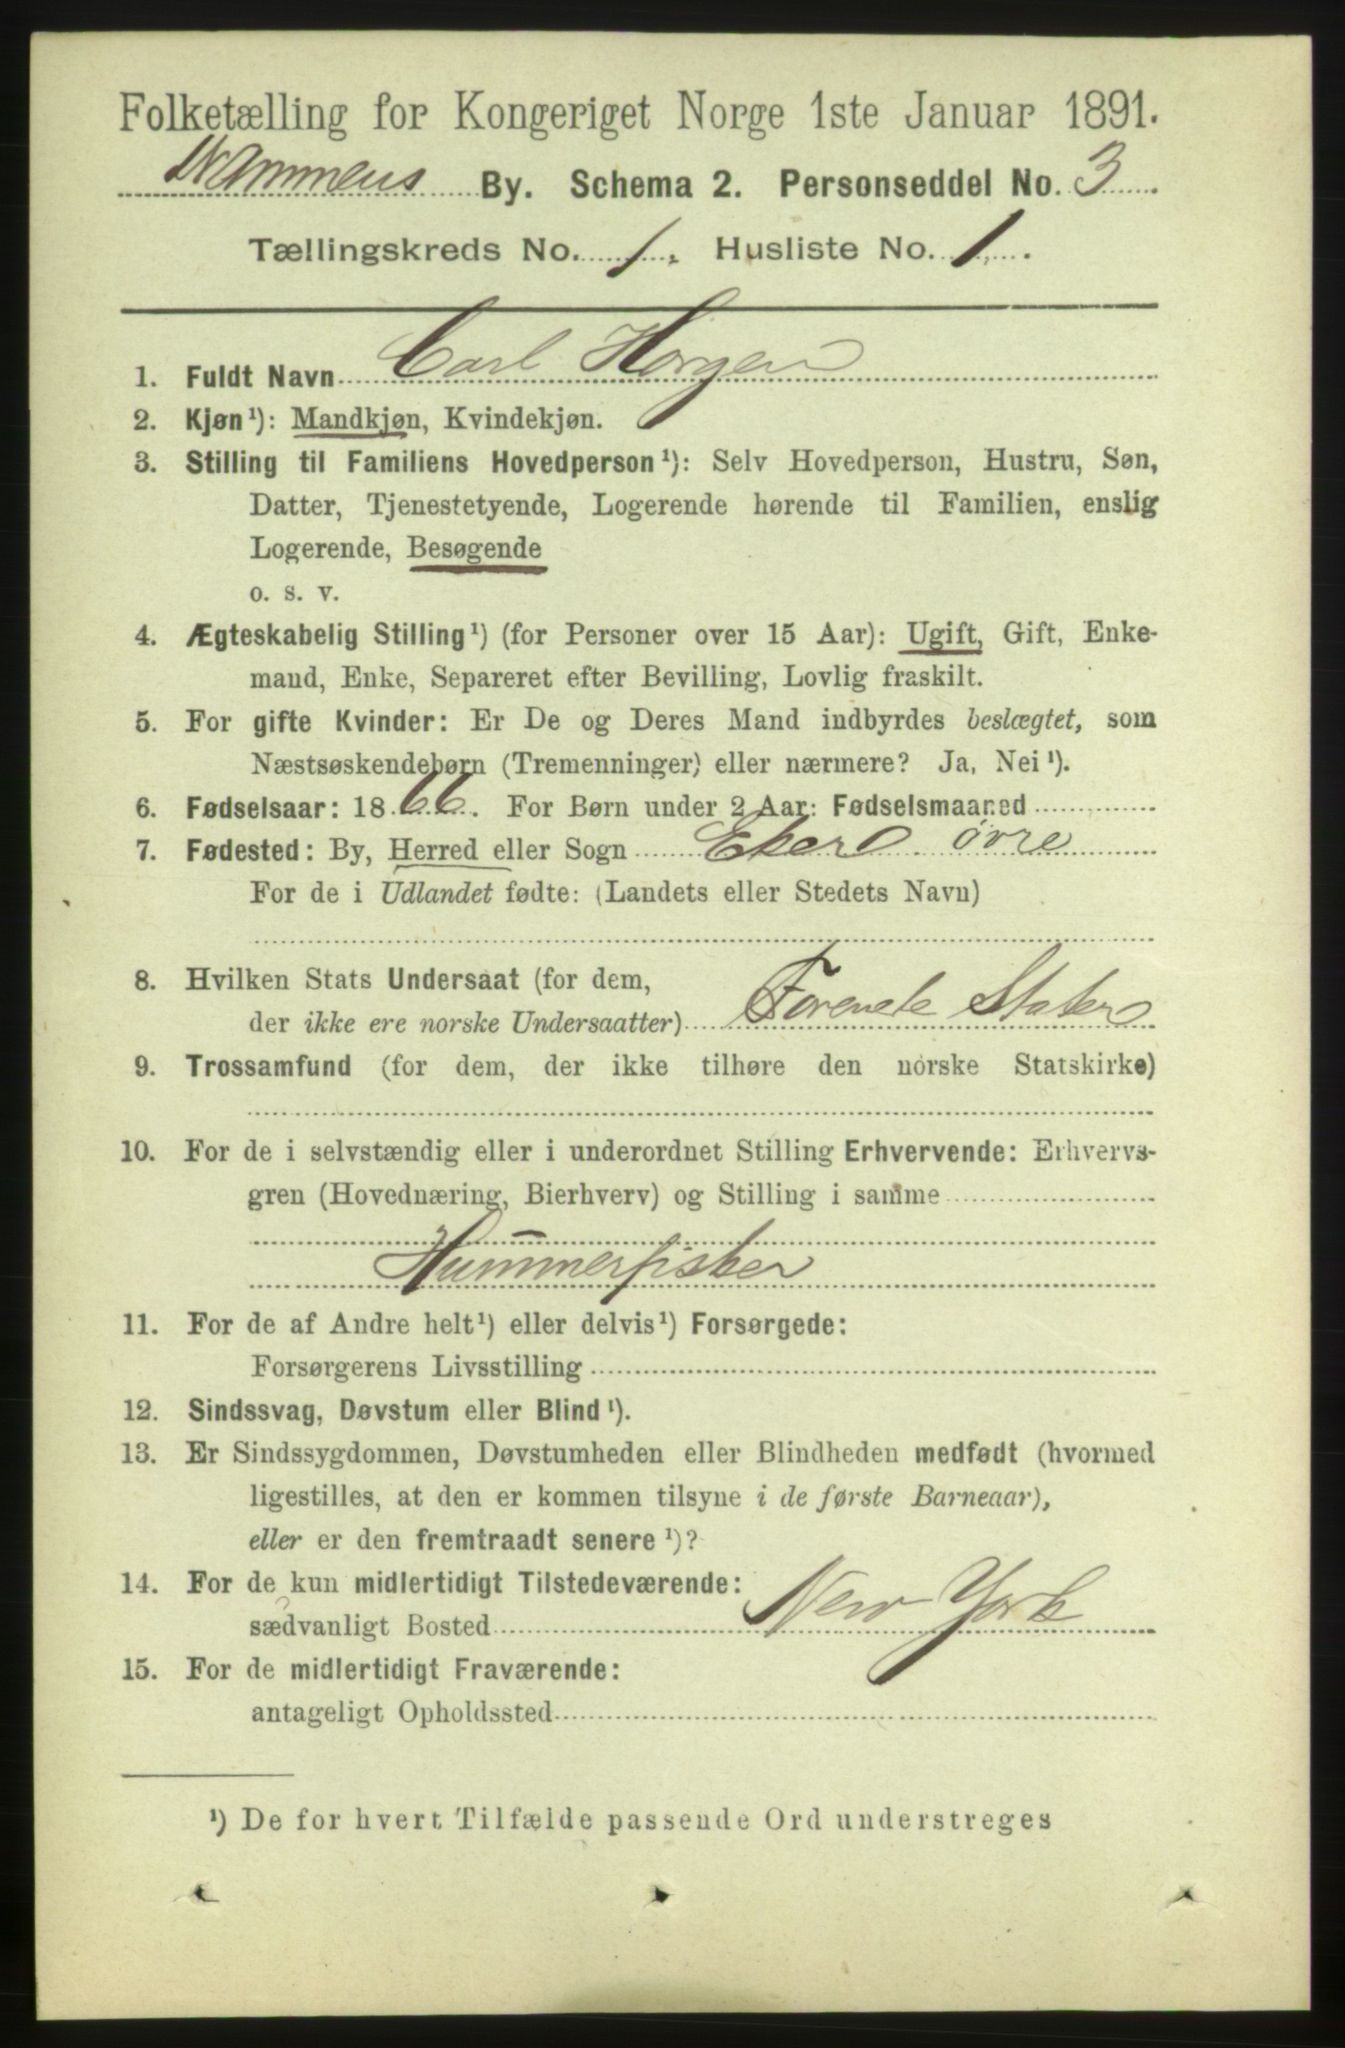 Folketælling for Kongeriget Norge 1ste Januar 1891.
Drammens By. Schema 2. Personseddel No. 3
Tællingskreds No. 1. Husliste No. 1.
1. Fuldt Navn Carl Horgen
2. Kjøn¹): Mandkjøn, Kvindekjøn.
3. Stilling til Familiens Hovedperson¹): Selv Hovedperson, Hustru, Søn,
Datter, Tjenestetyende, Logerende hørende til Familien, enslig
Logerende, Besøgende
o. s. v.
4. Ægteskabelig Stilling¹) (for Personer over 15 Aar): Ugift, Gift, Enke-
mand, Enke, Separeret efter Bevilling, Lovlig fraskilt.
5. For gifte Kvinder: Er De og Deres Mand indbyrdes beslægtet, som
Næstsøskendebørn (Tremenninger) eller nærmere? Ja, Nei¹).
6. Fødselsaar: 1866. For Børn under 2 Aar: Fødselsmaaned
7. Fødested: By, Herred eller Sogn Eker øvre
For de i Udlandet fødte: (Landets eller Stedets Navn)
8. Hvilken Stats Undersaat (for dem,
der ikke ere norske Undersaatter) Forenete Stater
9. Trossamfund (for dem, der ikke tilhøre den norske Statskirke)
10. For de i selvstændig eller i underordnet Stilling Erhvervende: Erhvervs-
gren (Hovednæring, Bierhverv) og Stilling i samme
Hummerfisker
11. For de af Andre helt¹) eller delvis¹) Forsørgede:
Forsørgerens Livsstilling
12. Sindssvag, Døvstum eller Blind¹).
13. Er Sindssygdommen, Døvstumheden eller Blindheden medfødt (hvormed
ligestilles, at den er kommen tilsyne i de første Barneaar),
eller er den fremtraadt senere¹)?
14. For de kun midlertidigt Tilstedeværende:
sædvanligt Bosted New York
15. For de midlertidigt Fraværende:
antageligt Opholdssted
¹) De for hvert Tilfælde passende Ord understreges